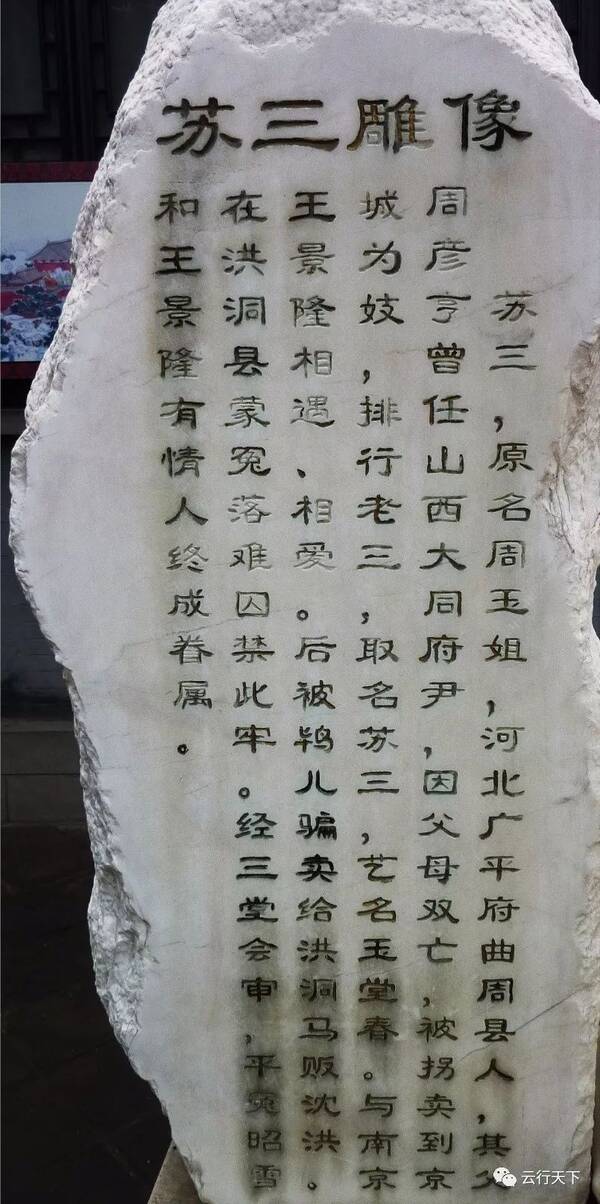 苏三雕像
苏三，原名周玉姐，河北广平府曲周县人，其父
周彦亨曾任山西大同府尹，因父母双亡，被拐卖到京
城为妓，排行老三，取名苏三，艺名玉堂春。与南京
王景隆相遇、相爱。后被鸨儿骗卖给洪洞马贩沈洪。
在洪洞县蒙冤落难囚禁此牢。经三堂会审，平冤昭雪
和王景隆有情人终成眷属。
云行天下